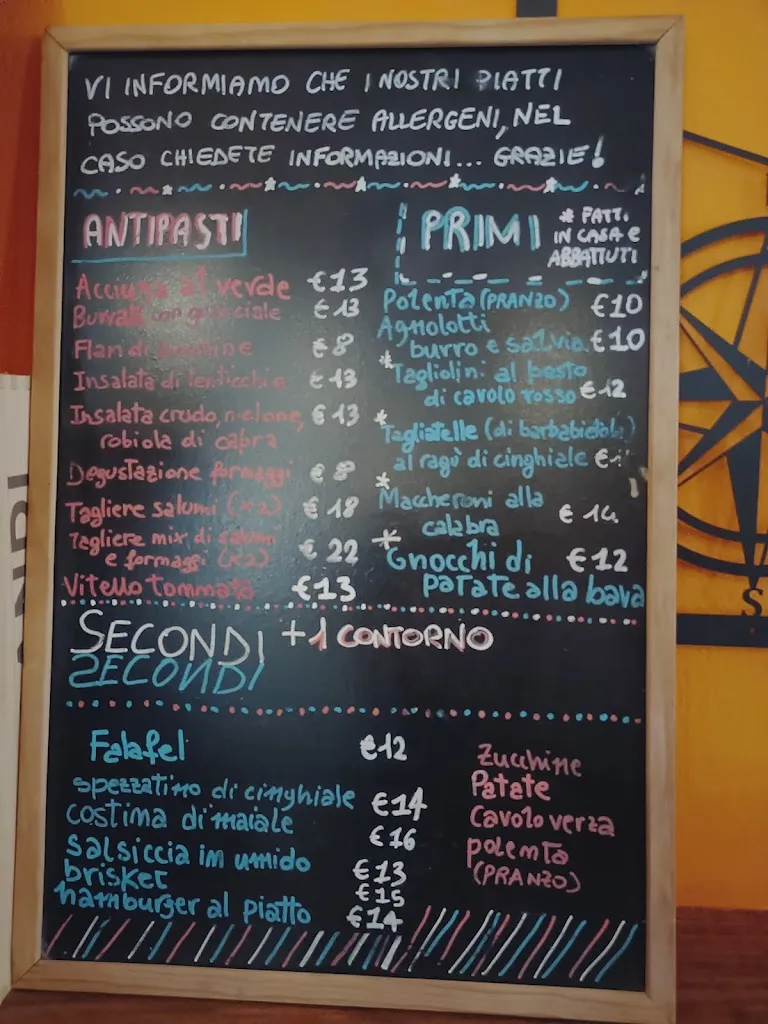 VI INFORMIAMO CHE I NOSTRI PIATTI
POSSONO CONTENERE ALLERGENI, NEL
CASO CHIEDETE INFORMAZIONI... GRAZIE!
ANTIPASTI
Acciuga al verde €13
Burrata con guanciale €13
Flan di €8
Insalata di lenticchie €13
Insalata crudo, melone, €13
robiola di capra
Degustazione formaggi €8
Tagliere salumi (x2) €18
Tagliere mix di salumi
e formaggi (x2) €22
Vitello Tommato €13
PRIMI
* FATTI
IN CASA E
ABBATTUTI
Polenta (PRANZO) €10
Agnolotti
burro e salvia €10
*Tagliolini al pesto
di cavolo rosso €12
*
Tagliatelle (di barbabietola)
al ragù di cinghiale €
*
Maccheroni alla
calabra €14
*
Gnocchi di €12
patate alla bava
SECONDI +1 CONTORNO
SECONDI
Falafel €12
spezzatino di cinghiale €14
costina di maiale €16
salsiccia in umido €13
brisket €15
hamburger al piatto €14
Zucchine
Patate
Cavolo verza
polenta
(PRANZO)
S